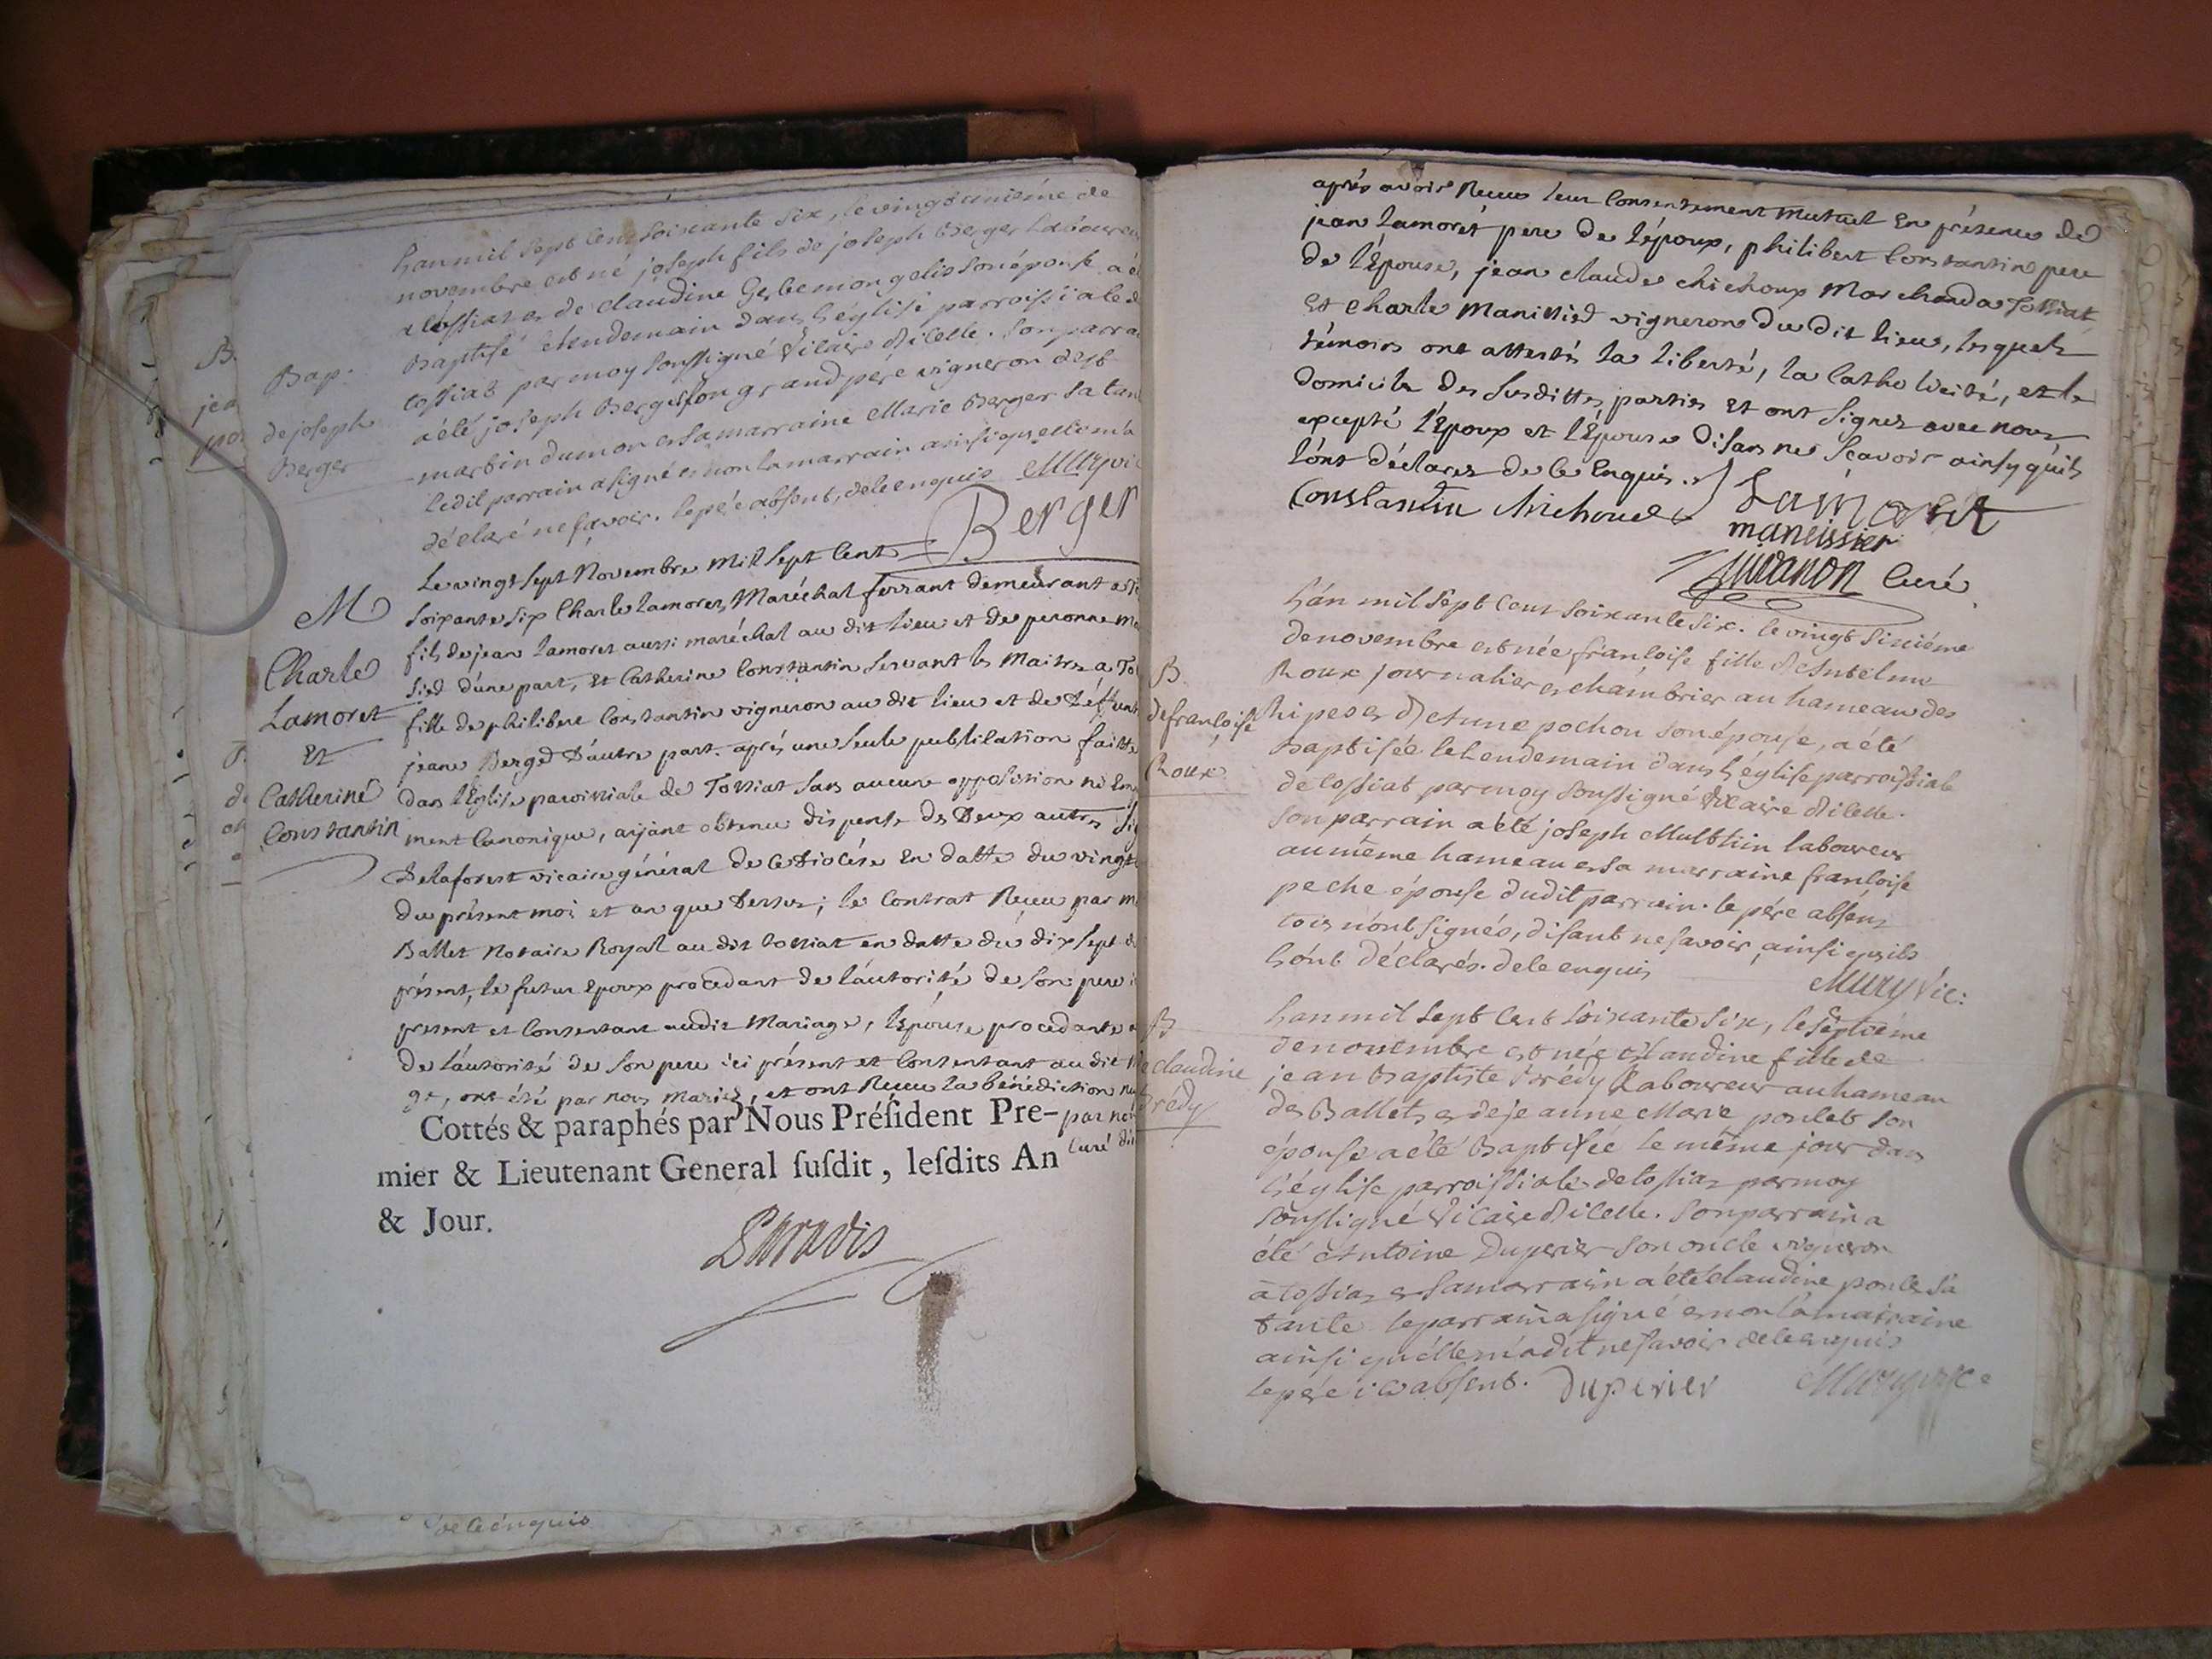 Bap:
de joseph
Berger
Lan mil sept cent soixante six, le vingt unième de
novembre est né joseph fils de joseph Berger laboureur
a tossiat et de claudine son épouse a é
Baptisé le lendemain dans l'église parroissiale d
tossiat par moy soussigné vicaire d'icelle. son parra
a été joseph Berger son grand père vigneron de st
martin dumon et sa marraine Marie Berger sa tan
ledit parrain a signé et non la marrain ainsi quelle m'a
déclaré ne savoir. le père absent, de le enquis Mury vic
Berger
M
Charle
Lamoret
Et
Catherine
Constantin
Le vingt sept Novembre Mill sept Cent
soixante six Charle Lamoret, Maréchal ferrant demeurant a To
fils de jean Lamoret aussi maréchal au dit lieu et de peronne Ma
sied d'une part, Et Catherine Constantin servant les Maitres a To
fille de philibert Constantin vigneron au dit lieu et de Deffunt
jeane Berged D'autre part. après une seule publication faitte
dans l'Eglise paroissiale de Tossiat sans aucune opposition ni Em
ment Canonique, aijant obtenu dispense des Deux autres si
Delaforest vicaire général de ce Diocése En datte du vingt
du présent moi et an que Dessus; le Contrat Reçeu par m
Ballet Notaire Royal au dit tossiat en datte du dix sept d
présent, le futur Epoux procedant de l'autorité de son pere i
present et Consentant audit Mariage, l'Epouse procedante a
de l'autorité de son pere ici présent et Consentant au dit M
ge, ont été par nous mariés, et ont Reçeu la bénédiction nu
par no
Curé du
Cottés & paraphés par Nous Préſident Pre-
mier & Lieutenant General ſuſdit, leſdits An
& Jour.
Paradis
de le enquis
après avoir Reçeu leur Consentement Mutuel En présence de
jean Lamorét pere de l'époux, philibert Constantin pere
de l'Epouse, jean claude chichoux Marchand a Tossiat
Et Charle Manissied vigneron du dit lieu, lesquels
témoins ont attestés la liberté, la Catholicité, et le
domicile des susdittes parties Et ont signez avec nous
excepté l'Epoux et l'Epouse disans ne sçavoir ainsy qu'ils
l'ont déclarez de le Enquis.
Constantin chichoud Lamorét
maneissier
Curé
B.
de françoise
Roux
Lan mil sept cent soixante six. le vingt sixiéme
de novembre est née françoise fille d'Antelme
Roux journalier et chambrier au hameau des
et d'etune pochon son épouse, a été
Baptisée le lendemain dans l'église parroissiale
de tossiat par moy soussigné vicaire d'icelle.
son parrain a été joseph laboureur
au même hameau et sa marraine françoise
peche épouse dudit parrain. le père absent
tois n'ont signés, disant ne savoir ainsi qu'ils
l'ont déclarés. de le enquis
Mury Vic:
B
de claudine
Brédy
Lan mil sept cent soixante six, le séptième
de novembre est née claudine fille de
jean Baptiste Brédy Laboureur au hameau
des Ballets et de jeanne Marie poulet son
épouse a été Baptisée le même jour dans
l'église parroissiale de tossiat par moy
soussigné vicaire d'icelle. son parrain a
été Antoine Duperier son oncle vigneron
à tossiat et sa marrain a été claudine poulet sa
tante le parrain a signé et non la marraine
ainsi qu'elle m'a dit ne savoir de le enquis
le père ici absent. duperier Mury vic